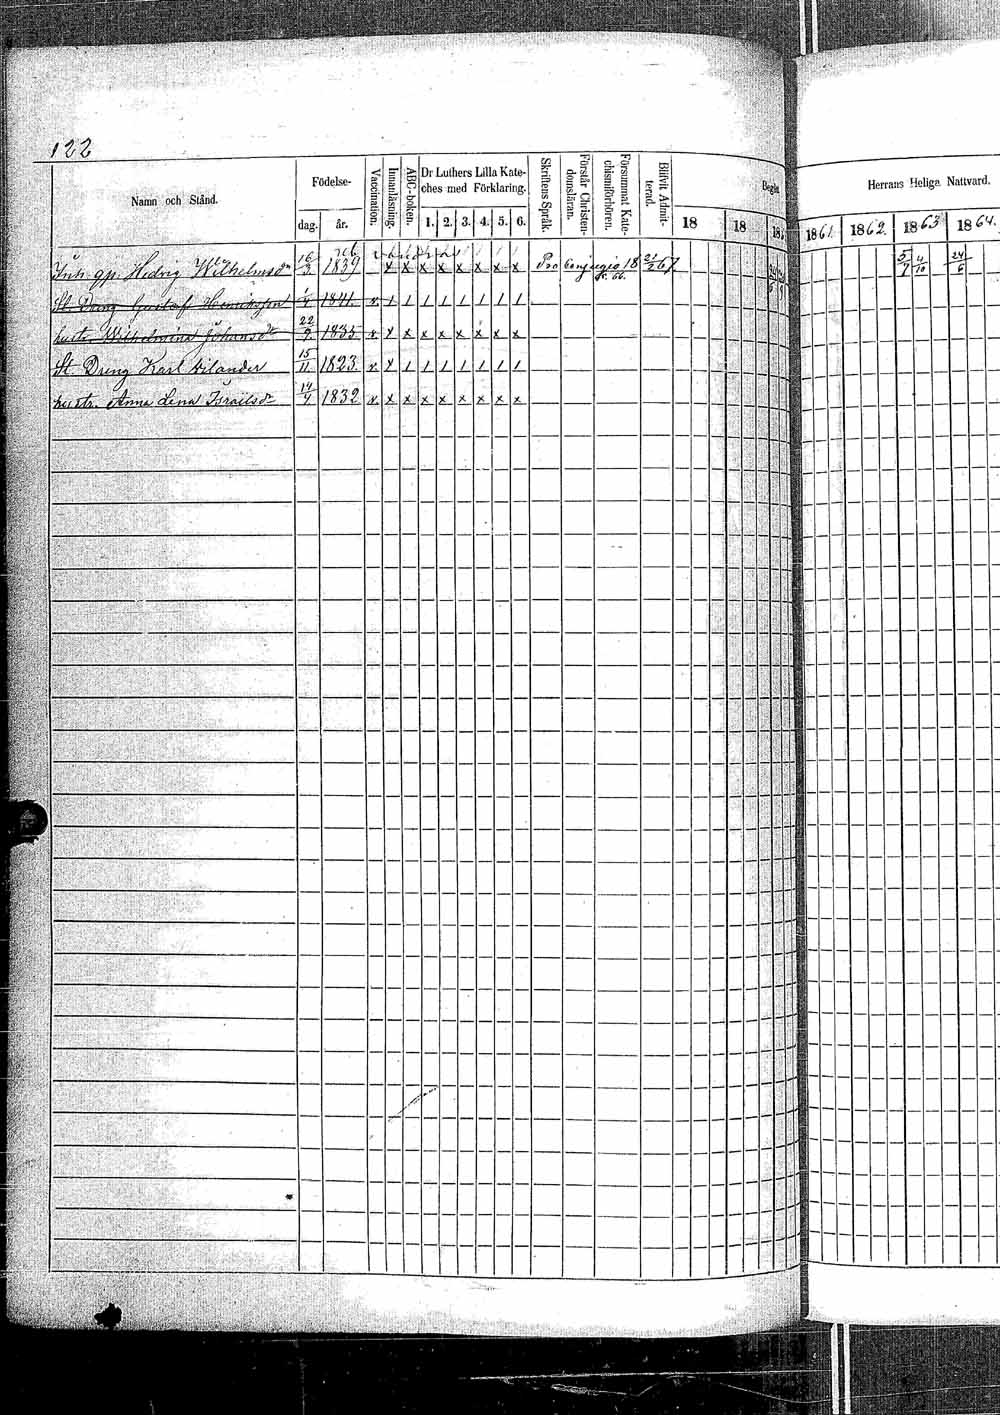 122
Namn och Stånd.
Födelse-
dag. år.
Vaccination.
Innanläsning.
ABC-boken.
Dr Luthers Lilla Kate-
ches med Förklaring.
1. 2. 3. 4. 5. 6.
Skriftens Språk.
Förstår Christen-
domsläran.
Försummat Kate-
chismiförhören.
Blifvit Admit-
terad.
18 18 18
Begått
Herrans Heliga Nattvard.
1861. 1862. 1863 1864.
Inh. qp. Hedvig Wilhelmsdr 16/3. 1839 x x x x x x x x Pro conjugio 18 21/2 67 5/7 4/10 24/6
St. Dreng Gustaf Henriksson 1841. v. / / / / / / / /
hustr. Wilhelmina Johansdr 22/9. 1835. v. x x x x x x x x
St. Dreng Karl Vilander 15/11. 1823. v. x / / / / / / /
hustr. Anna Lena Israilsdr 14/9 1832 v. x x x x x x x x